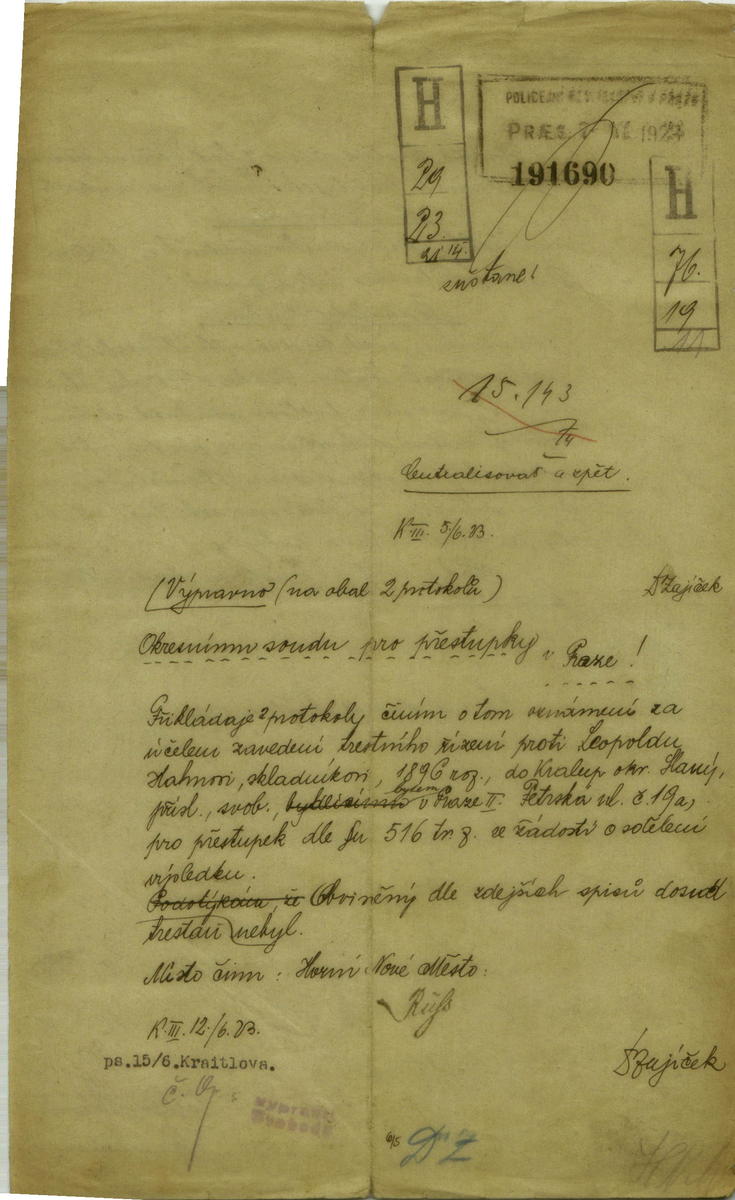 H
29
23.
21 14.
POLICEJNÍ ŘEDITELSTVÍ V PRAZE
PRÆS. 192
191690
H
76.
19
11
zůstane!
15.143
Centralisovat a zpět.
K III. 5/6.23.
(Výpravno (na obal 2 protokolů)
Dr Zajíček
Okresnímu soudu pro přestupky v Praze!
Přikládaje 2 protokoly činím o tom oznámení za
účelem zavedení trestního řízení proti Leopoldu
Hahnovi, skladníkovi, 1896 roz., do Kralup okr. Slaný,
přísl., svob., bytem v Praze II. Petrská ul. č. 19a,
pro přestupek dle §u 516 tr. z. se žádostí o sdělení
výsledku.
Podotýkám, že Obviněný dle zdejších spisů dosud
trestán nebyl.
Místo činu: Horní Nové Město.
K. III. 12./6.23.
Dr Zajíček
ps.15/6.Kraitlova.
6/5
Dr Z